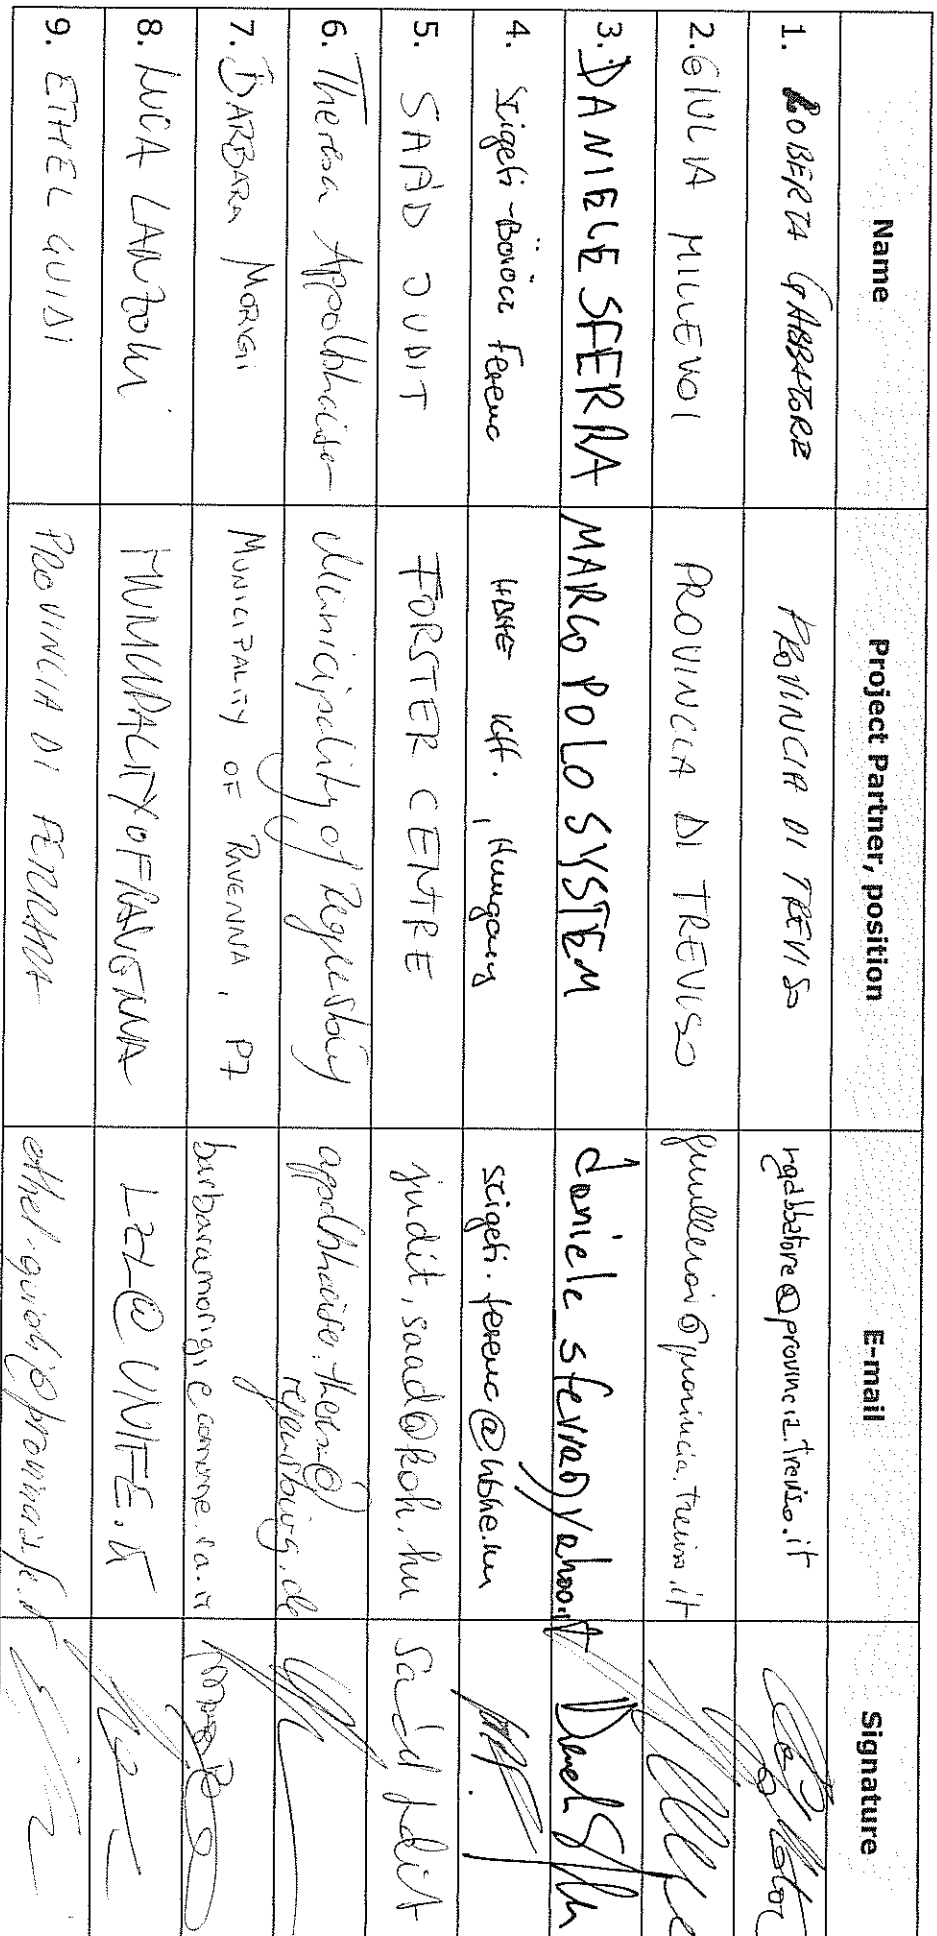 Name Project Partner, position E-mail Signature
1. ROBERTA GABBATORE PROVINCIA DI TREVISO rgabbatore@provincia.treviso.it
2. GIULIA MILLEVOI PROVINCIA DI TREVISO gmillevoi@provincia.treviso.it
3. DANIELE SFERRA MARCO POLO SYSTEM daniele_sferra@yahoo.it
4. Szigeti-Böröcz Ferenc HBHE Kft., Hungary szigeti.ferenc@hbhe.hu
5. SAÁD JUDIT FORSTER CENTRE judit.saad@koh.hu Saád Judit
6. Theresa Municipality of Regensburg regensburg.de
7. BARBARA MORIGI MUNICIPALITY OF RAVENNA, P7 barbaramorigi@comune.ra.it
8. LUCA LANZONI MUNICIPALITY OF RAVENNA LZL@UNIFE.IT
9. ETHEL GUIDI PROVINCIA DI FERRARA ethel.guidi@provincia.fe.it